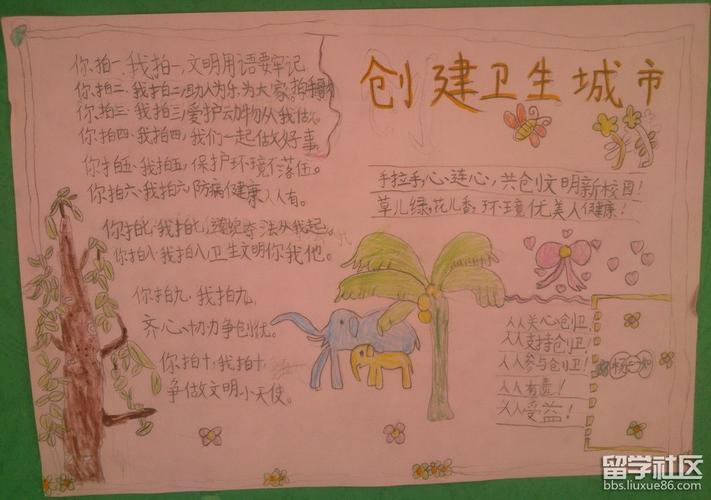 创建卫生城市
你拍一、我拍一,文明用语要牢记
你拍二、我拍二,助人为乐,为大家。拍手歌
你拍三、我拍三,爱护动物从我做。
你拍四、我拍四,我们一起做好事。
你拍五、我拍五,保护环境不落伍。
你拍六、我拍六,防病健康人人有。
你拍七、我拍七,遵纪守法从我起。
你拍八、我拍八,卫生文明你我他。
你拍九、我拍九,
齐心协力争创优。
你拍十,我拍十,
争做文明小天使。
手拉手,心连心,共创文明新校园!
草儿绿,花儿香,环境优美人健康!
人人关心创卫,
人人支持创卫!
人人参与创卫!
人人有责!
人人受益!
留学社区
bbs.liuxue86.com